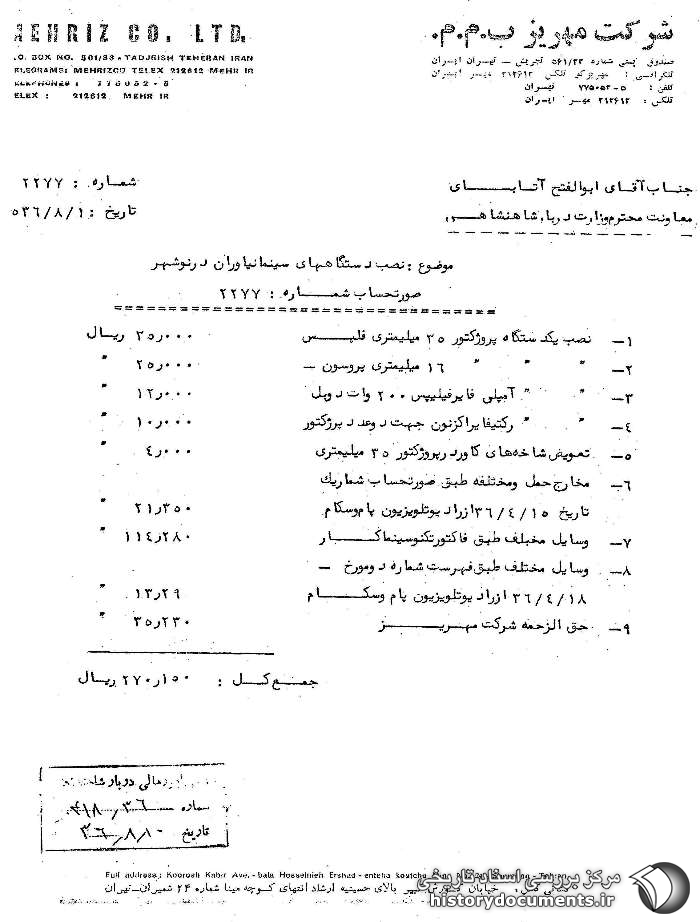 MEHRIZ CO. LTD.
شرکت مهریز ب.م.م.
.O. BOX NO. 501/33 - TADJRISH TEHERAN IRAN
ELEGRAMS: MEHRIZCO TELEX 212612 MEHR IR
ELEX : 212612 MEHR IR
صندوق پستی شماره ۵۶۱/۳۳ تجریش – تهران ایران
تلگرافی : مهریزکو تلکس ۲۱۲۶۱۲ مهر ایران
تلفن : ۵-۷۷۵۰۵۲ تهران
تلکس : ۲۱۲۶۱۲ مهر ایران
جناب آقای ابوالفتح آتابای
معاونت محترم وزارت دربار شاهنشاهی
شماره : ۲۲۷۷
تاریخ : ۵۳۶/۸/۱
موضوع : نصب دستگاههای سینما نیاوران در نوشهر
صورتحساب شماره : ۲۲۷۷
۱– نصب یکدستگاه پروژکتور ۳۵ میلیمتری فلیپس ۳۵ر۰۰۰ ریال
۲– " " ۱۶ میلیمتری پروسون – ۲۵ر۰۰۰ "
۳– " " آمپلی فایر فیلیپس ۲۰۰ وات دوبل ۱۲ر۰۰۰ "
۴– " " رکتیفایر اکزنون جهت دو عدد پرژکتور ۱۰ر۰۰۰ "
۵– تعویض شاخه‌های کاور در پروژکتور ۳۵ میلیمتری ۴ر۰۰۰ "
۶– مخارج حمل و مختلفه طبق صورتحساب شمار یک
تاریخ ۳۶/۴/۱۵ از رادیو تلویزیون پام وسکام ۲۱ر۳۵۰ "
۷– وسایل مختلف طبق فاکتور تکنوسینما کار ۱۱۴ر۲۸۰ "
۸– وسایل مختلف طبق فهرست شماره دو مورخ –
۳۶/۴/۱۸ از رادیو تلویزیون پام وسکام ۱۳ر۲۹ "
۹– حق الزحمه شرکت مهریز ۳۵ر۲۳۰ "
جمع کل : ۲۷۰ر۱۵۰ ریال
شماره ۴۱۸٫۳۶
تاریخ ۳۶٫۸٫۱۰
Full address: Koorosh Kabir Ave.- bala Hosseinieh Ershad - enteha
خیابان کورش کبیر بالای حسینیه ارشاد انتهای کوچه مینا شماره ۲۴ شمیران-تهران
مرکز بررسی اسناد تاریخی
historydocuments.ir